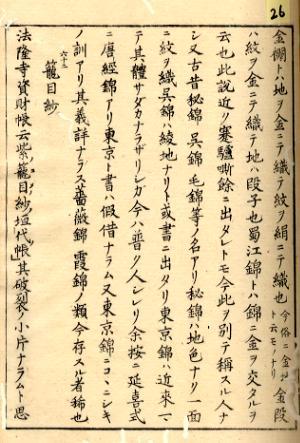 26
金襴トハ地ヲ金ニテ織ヲ紋ヲ絹ニテ織也 今俗ニ金地ト云モノナリ 金段
ハ紋ヲ金ニテ織テ地ハ段子也蜀江錦トハ錦ニ金ヲ交タルヲ
云也此説近ク蹇驢嘶餘ニ出タレトモ今此ヲ別テ稱スル人ナ
シ又古昔秘錦呉錦毛錦等ノ名アリ秘錦ハ地色ナリ一面
ニ紋ヲ織呉錦ハ綾地ナリト或書ニ出タリ東京錦ハ近來マ
テ其體サダカナラザリシガ今ハ普ク人シレリ余按ニ延喜式
ニ㬪繝錦アリ東京ト書ハ假借ナラム又東京錦ニコヽニシキ
ノ訓アリ其義詳ナラス薔薇錦霞錦ノ類今存スル者稀也
六十三
籠目紗
法隆寺資財帳云紫籠目紗垣代帳其破裂ノ小片ナラムト思